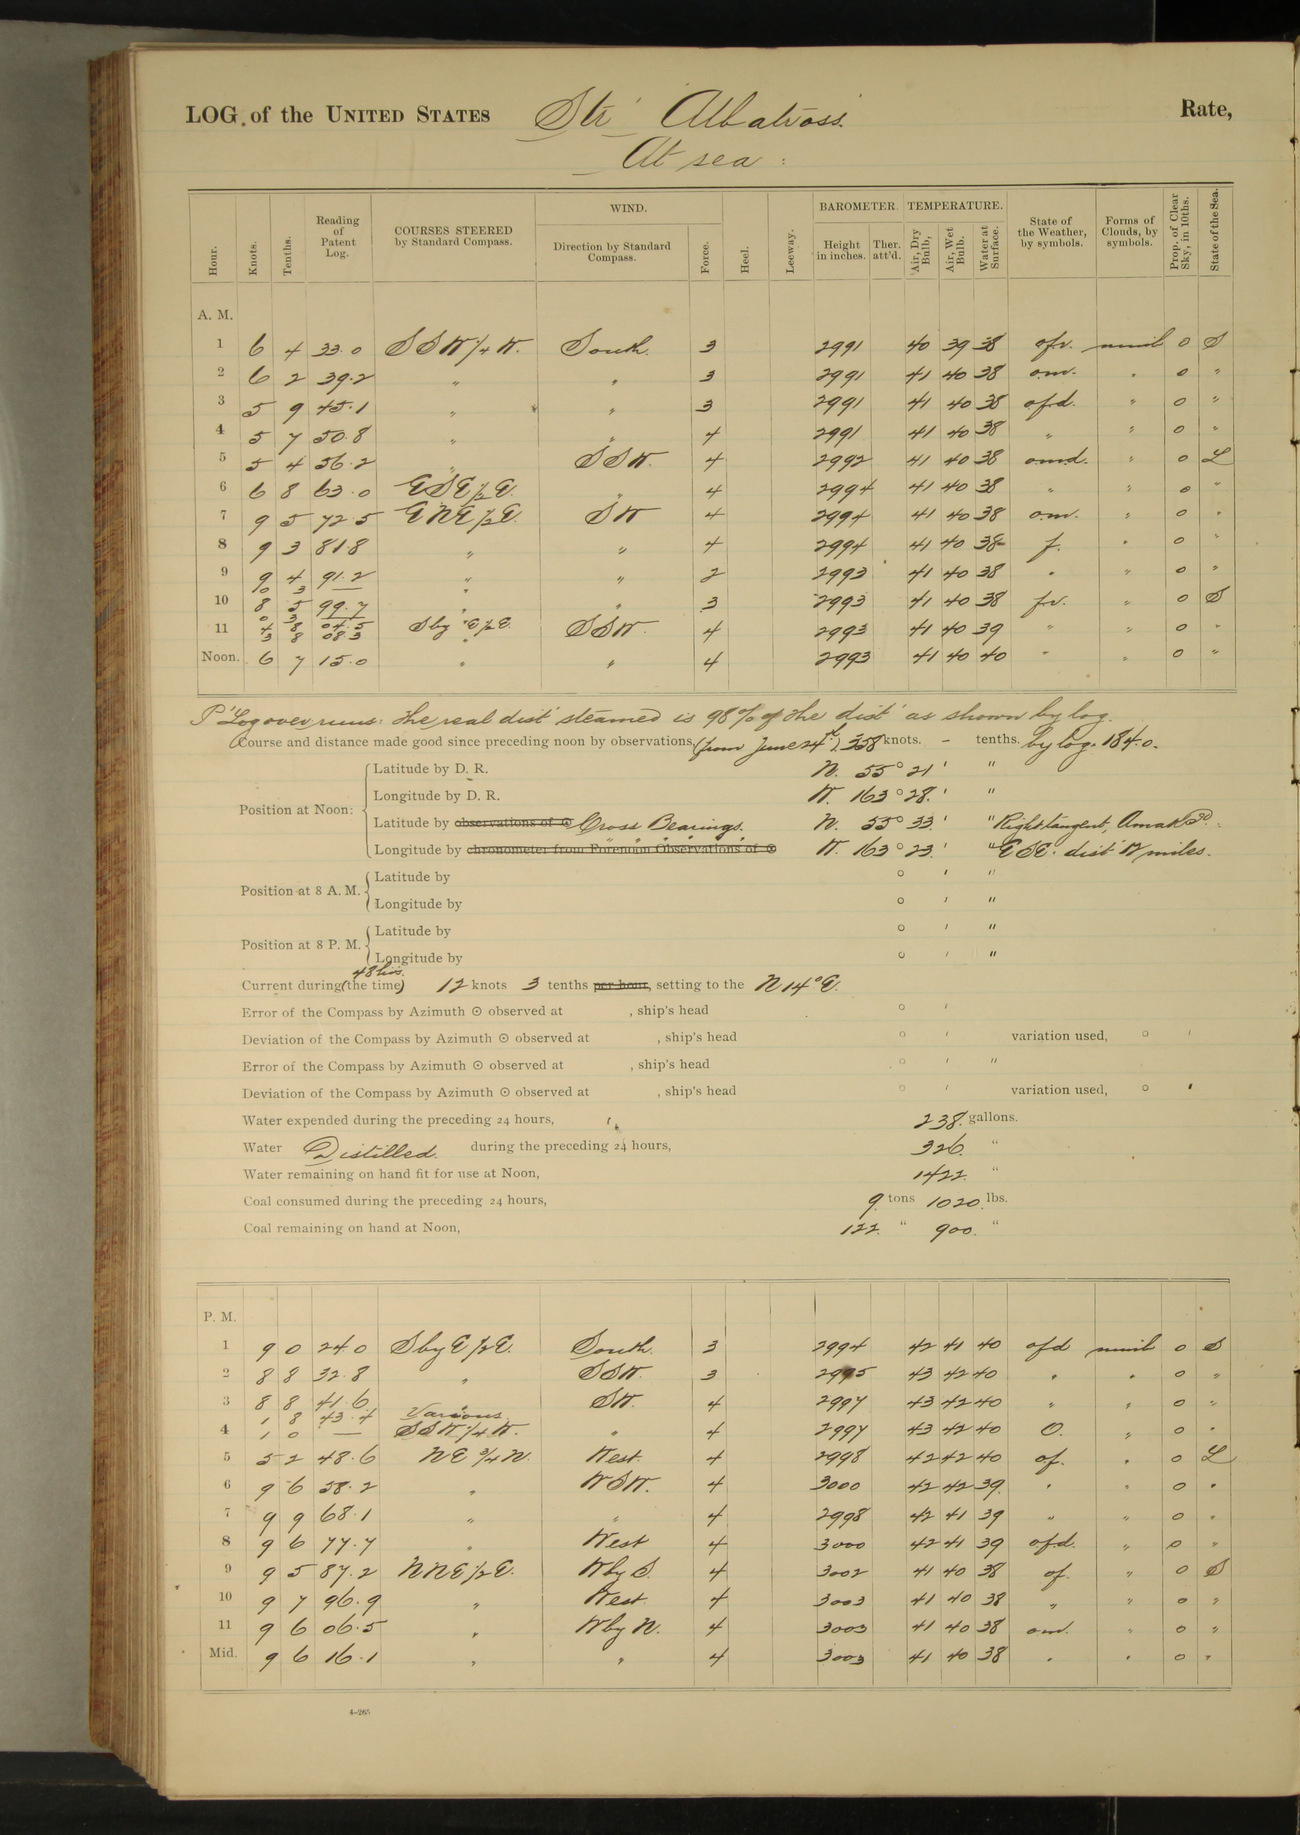 LOG of the UNITED STATES Str Albatross Rate,
At sea
Hour. Knots. Tenths. Reading of Patent Log. COURSES STEERED by Standard Compass. WIND. Direction by Standard Compass. Force. Heel. Leeway. BAROMETER. Height in inches. Ther. att'd. TEMPERATURE. Air, Dry Bulb, Air, Wet Bulb. Water at Surface. State of the Weather, by symbols. Forms of Clouds, by symbols. Prop. of Clear Sky, in 10ths. State of the Sea.
A. M.
1 6 4 33.0 SSW 1/4 W. South. 3 2991 40 39 38 ofr. nimb 0 S
2 6 2 39.2 " " 3 2991 41 40 38 o.m. " 0 "
3 5 9 45.1 " " 3 2991 41 40 38 ofd. " 0 "
4 5 7 50.8 " " 4 2991 41 40 38 " " 0 "
5 5 4 56.2 " SSW. 4 2992 41 40 38 omd. " 0 L
6 6 8 63.0 ESE 1/2 E. " 4 2994 41 40 38 " " 0 "
7 9 5 72.5 ENE 1/2 E. SW 4 2994 41 40 38 o.m. " 0 "
8 9 3 81.8 " " 4 2994 41 40 38 f. " 0 "
9 9 4 91.2 " " 2 2993 41 40 38 " " 0 "
0 3 — "
10 8 5 99.7 " " 3 2993 41 40 38 fr. " 0 S
0 3 —
11 4 8 04.5 S by E 1/2 E. SSW. 4 2993 41 40 39 " " 0 "
3 8 08 3 "
Noon. 6 7 15.0 " " 4 2993 41 40 40 " " 0 "
P' Log over runs: The real dist' steamed is 98% of the dist' as shown by log.
Course and distance made good since preceding noon by observations, (from June 24th). 358 knots. - tenths. by log. 184.0.
Position at Noon: Latitude by D. R. N. 55° 21' "
Longitude by D. R. W. 163° 28.' "
Latitude by observations of ☉ Cross Bearings. N. 55° 33.' " Right tangent, Amak Id.
Longitude by chronometer from Forenoon Observations of ☉ " " " " W. 163° 23.' " ESE. dist 12 miles.
Position at 8 A. M. Latitude by ° ' "
Longitude by ° ' "
Position at 8 P. M. Latitude by ° ' "
Longitude by ° ' "
48 hrs.
Current during (the time) 12 knots 3 tenths per hour, setting to the N 14° E.
Error of the Compass by Azimuth ☉ observed at , ship's head ° '
Deviation of the Compass by Azimuth ☉ observed at , ship's head ° ' variation used, ° '
Error of the Compass by Azimuth ☉ observed at , ship's head ° ' "
Deviation of the Compass by Azimuth ☉ observed at , ship's head ° ' variation used, ° '
Water expended during the preceding 24 hours, 238. gallons.
Water Distilled. during the preceding 24 hours, 326. "
Water remaining on hand fit for use at Noon, 1422. "
Coal consumed during the preceding 24 hours, 9. tons 1020. lbs.
Coal remaining on hand at Noon, 122. " 900. "
P. M.
1 9 0 24 0 S by E 1/2 E. South. 3 2994 42 41 40 ofd nimb 0 S
2 8 8 32.8 " SSW. 3 2995 43 42 40 " " 0 "
3 8 8 41.6 " SW. 4 2997 43 42 40 " " 0 "
1 8 43.4 Various
4 1 0 — SSW 1/4 W. " 4 2997 43 42 40 O. " 0 "
5 5 2 48.6 NE 3/4 N. West. 4 2998 42 42 40 of. " 0 L
6 9 6 58.2 " WSW. 4 3000 42 42 39. " " 0 "
7 9 9 68.1 " " 4 2998 42 41 39 " " 0 "
8 9 6 77.7 " West 4 3000 42 41 39 ofd. " 0 "
9 9 5 87.2 NNE 1/2 E. W by S. 4 3002 41 40 38 of. " 0 S
10 9 7 96.9 " West 4 3003 41 40 38 " " 0 "
11 9 6 06.5 " W by N. 4 3003 41 40 38 om. " 0 "
Mid. 9 6 16.1 " " 4 3003 41 40 38 " " 0 "
4-265